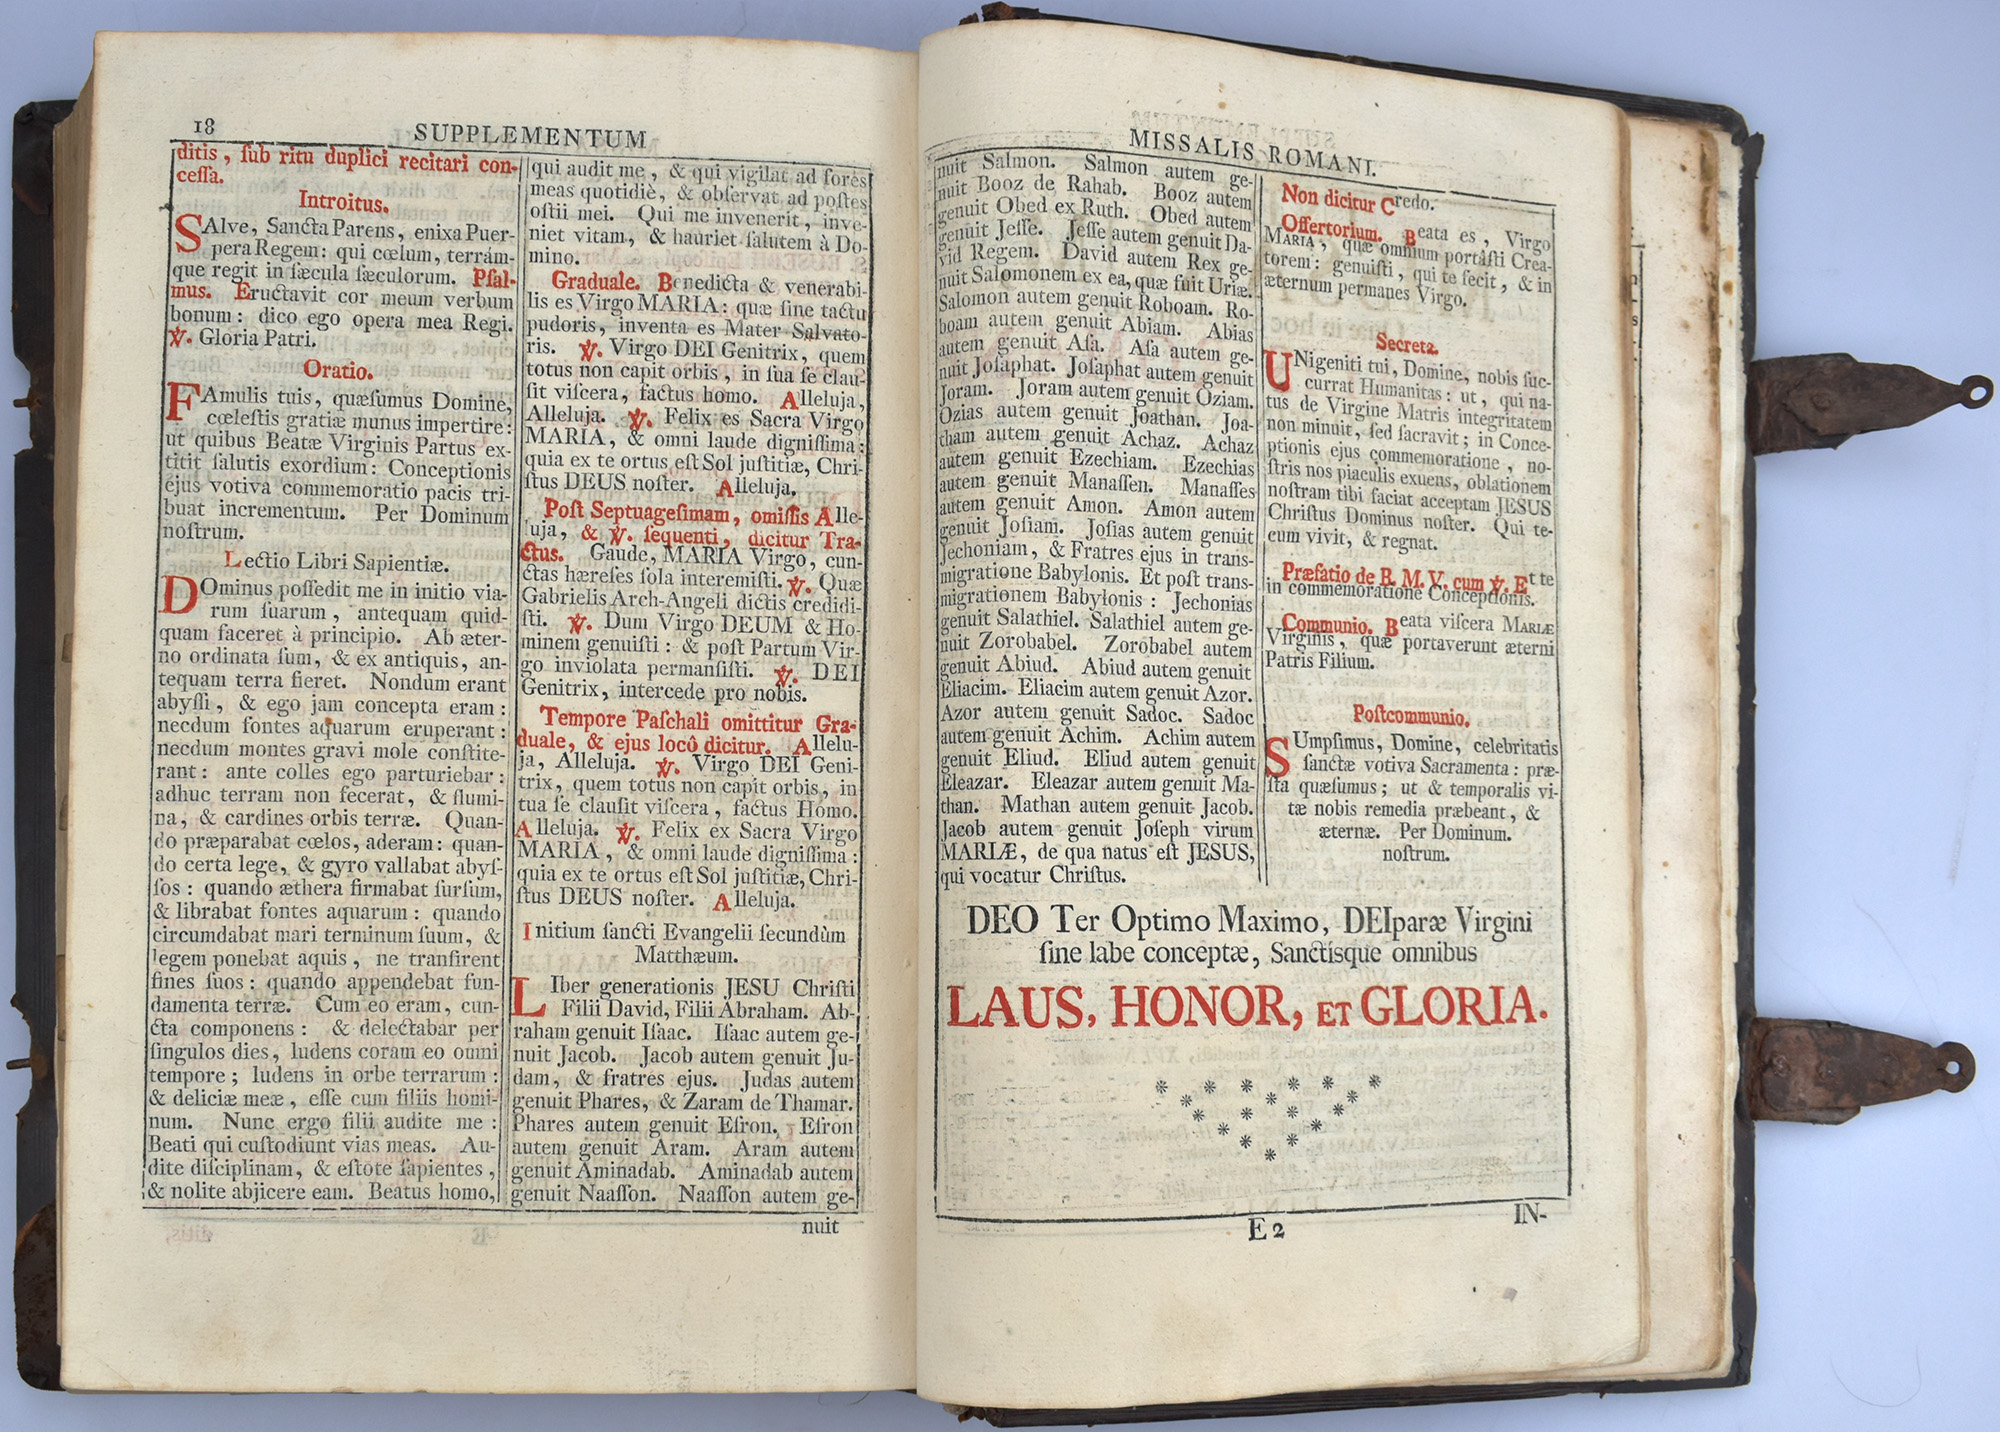 18
SUPPLEMENTUM
ditis, ſub ritu duplici recitari con-
ceſſa.
Introitus.
SAlve, Sancta Parens, enixa Puer-
pera Regem: qui cœlum, terrám-
que regit in ſæcula ſæculorum. Pſal-
mus. Eructavit cor meum verbum
bonum: dico ego opera mea Regi.
℣. Gloria Patri.
Oratio.
FAmulis tuis, quæſumus Domine,
cœleſtis gratiæ munus impertire:
ut quibus Beatæ Virginis Partus ex-
titit ſalutis exordium: Conceptionis
ejus votiva commemoratio pacis tri-
buat incrementum. Per Dominum
noſtrum.
Lectio Libri Sapientiæ.
DOminus poſſedit me in initio via-
rum ſuarum, antequam quid-
quam faceret à principio. Ab æter-
no ordinata ſum, & ex antiquis, an-
tequam terra fieret. Nondum erant
abyſſi, & ego jam concepta eram:
necdum fontes aquarum eruperant:
necdum montes gravi mole conſtite-
rant: ante colles ego parturiebar:
adhuc terram non fecerat, & flumi-
na, & cardines orbis terræ. Quan-
do præparabat cœlos, aderam: quan-
do certa lege, & gyro vallabat abyſ-
ſos: quando æthera firmabat ſurſum,
& librabat fontes aquarum: quando
circumdabat mari terminum ſuum, &
legem ponebat aquis, ne tranſirent
fines ſuos: quando appendebat fun-
damenta terræ. Cum eo eram, cun-
cta componens: & delectabar per
ſingulos dies, ludens coram eo omni
tempore; ludens in orbe terrarum:
& deliciæ meæ, eſſe cum filiis homi-
num. Nunc ergo filii audite me:
Beati qui cuſtodiunt vias meas. Au-
dite diſciplinam, & eſtote ſapientes,
& nolite abjicere eam. Beatus homo,
qui audit me, & qui vigilat ad fores
meas quotidiè, & obſervat ad poſtes
oſtii mei. Qui me invenerit, inve-
niet vitam, & hauriet ſalutem à Do-
mino.
Graduale. Benedicta & venerabi-
lis es Virgo MARIA: quæ ſine tactu
pudoris, inventa es Mater Salvato-
ris. ℣. Virgo DEI Genitrix, quem
totus non capit orbis, in ſua ſe clau-
ſit viſcera, factus homo. Alleluja,
Alleluja. ℣. Felix es Sacra Virgo
MARIA, & omni laude digniſſima:
quia ex te ortus eſt Sol juſtitiæ, Chri-
ſtus DEUS noſter. Alleluja.
Poſt Septuageſimam, omiſſis Alle-
luja, & ℣. ſequenti, dicitur Tra-
ctus. Gaude, MARIA Virgo, cun-
ctas hæreſes ſola interemiſti. ℣. Quæ
Gabrielis Arch-Angeli dictis credidi-
ſti. ℣. Dum Virgo DEUM & Ho-
minem genuiſti: & poſt Partum Vir-
go inviolata permanſiſti. ℣. DEI
Genitrix, intercede pro nobis.
Tempore Paſchali omittitur Gra-
duale, & ejus locô dicitur. Allelu-
ja, Alleluja. ℣. Virgo DEI Geni-
trix, quem totus non capit orbis, in
tua ſe clauſit viſcera, factus Homo.
Alleluja. ℣. Felix ex Sacra Virgo
MARIA, & omni laude digniſſima:
quia ex te ortus eſt Sol juſtitiæ, Chri-
ſtus DEUS noſter. Alleluja.
Initium ſancti Evangelii ſecundùm
Matthæum.
LIber generationis JESU Chriſti
Filii David, Filii Abraham. Ab-
raham genuit Iſaac. Iſaac autem ge-
nuit Jacob. Jacob autem genuit Ju-
dam, & fratres ejus. Judas autem
genuit Phares, & Zaram de Thamar.
Phares autem genuit Eſron. Eſron
autem genuit Aram. Aram autem
genuit Aminadab. Aminadab autem
genuit Naaſſon. Naaſſon autem ge-
nuit
MISSALIS ROMANI.
nuit Salmon. Salmon autem ge-
nuit Booz de Rahab. Booz autem
genuit Obed ex Ruth. Obed autem
genuit Jeſſe. Jeſſe autem genuit Da-
vid Regem. David autem Rex ge-
nuit Salomonem ex ea, quæ fuit Uriæ.
Salomon autem genuit Roboam. Ro-
boam autem genuit Abiam. Abias
autem genuit Aſa. Aſa autem ge-
nuit Joſaphat. Joſaphat autem genuit
Joram. Joram autem genuit Oziam.
Ozias autem genuit Joathan. Joa-
tham autem genuit Achaz. Achaz
autem genuit Ezechiam. Ezechias
autem genuit Manaſſen. Manaſſes
autem genuit Amon. Amon autem
genuit Joſiam. Joſias autem genuit
Jechoniam, & Fratres ejus in trans-
migratione Babylonis. Et poſt trans-
migrationem Babylonis: Jechonias
genuit Salathiel. Salathiel autem ge-
nuit Zorobabel. Zorobabel autem
genuit Abiud. Abiud autem genuit
Eliacim. Eliacim autem genuit Azor.
Azor autem genuit Sadoc. Sadoc
autem genuit Achim. Achim autem
genuit Eliud. Eliud autem genuit
Eleazar. Eleazar autem genuit Ma-
than. Mathan autem genuit Jacob.
Jacob autem genuit Joſeph virum
MARIÆ, de qua natus eſt JESUS,
qui vocatur Chriſtus.
Non dicitur Credo.
Offertorium. Beata es, Virgo
MARIA, quæ omnium portâſti Crea-
torem: genuiſti, qui te fecit, & in
æternum permanes Virgo.
Secreta.
UNigeniti tui, Domine, nobis ſuc-
currat Humanitas: ut, qui na-
tus de Virgine Matris integritatem
non minuit, ſed ſacravit; in Conce-
ptionis ejus commemoratione, no-
ſtris nos piaculis exuens, oblationem
noſtram tibi faciat acceptam JESUS
Chriſtus Dominus noſter. Qui te-
cum vivit, & regnat.
Præfatio de B. M. V. cum ℣. Et te
in commemoratione Conceptionis.
Communio. Beata viſcera MARIÆ
Virginis, quæ portaverunt æterni
Patris Filium.
Poſtcommunio.
SUmpſimus, Domine, celebritatis
ſanctæ votiva Sacramenta: præ-
ſta quæſumus; ut & temporalis vi-
tæ nobis remedia præbeant, &
æternæ. Per Dominum.
noſtrum.
DEO Ter Optimo Maximo, DEIparæ Virgini
ſine labe conceptæ, Sanctíſque omnibus
LAUS, HONOR, ET GLORIA.
E 2
IN-